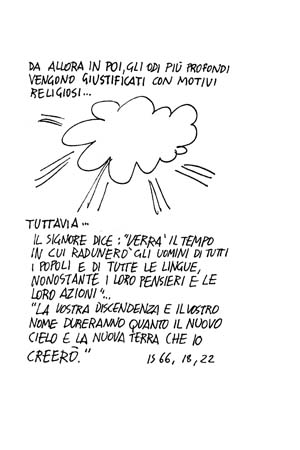 DA ALLORA IN POI, GLI ODI PIÙ PROFONDI
VENGONO GIUSTIFICATI CON MOTIVI
RELIGIOSI...
TUTTAVIA...
IL SIGNORE DICE: "VERRA' IL TEMPO
IN CUI RADUNERO' GLI UOMINI DI TUTTI
I POPOLI E DI TUTTE LE LINGUE,
NONOSTANTE I LORO PENSIERI E LE
LORO AZIONI"...
"LA VOSTRA DISCENDENZA E IL VOSTRO
NOME DURERANNO QUANTO IL NUOVO
CIELO E LA NUOVA TERRA CHE IO
CREERÒ."
IS 66, 18, 22